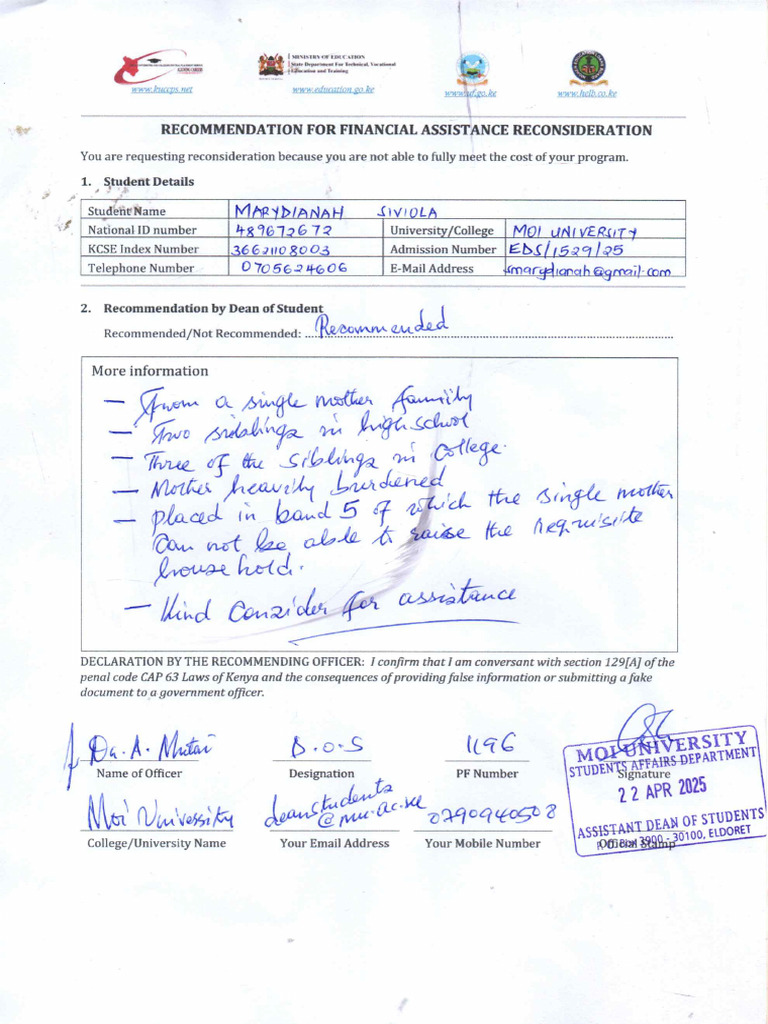 www.kuccps.net
MINISTRY OF EDUCATION
State Department For Technical, Vocational
Education and Training
www.education.go.ke
www.uf.go.ke
www.helb.co.ke
RECOMMENDATION FOR FINANCIAL ASSISTANCE RECONSIDERATION
You are requesting reconsideration because you are not able to fully meet the cost of your program.
1. Student Details
Student Name MARYDIANAH SIVIOLA
National ID number 489672672 University/College MOI UNIVERSITY
KCSE Index Number 36621108003 Admission Number EDS/1529/25
Telephone Number 0705624606 E-Mail Address smarydianah@gmail.com
2. Recommendation by Dean of Student
Recommended/Not Recommended: Recommended
More information
— From a single mother family
— Two siblings in high school
— Three of the siblings in College.
— Mother heavily burdened
— placed in band 5 of which the single mother
can not be able to raise the requisite
house hold.
— Kind consider for assistance
DECLARATION BY THE RECOMMENDING OFFICER: I confirm that I am conversant with section 129[A] of the
penal code CAP 63 Laws of Kenya and the consequences of providing false information or submitting a fake
document to a government officer.
Dr. A. Mutai D.O.S 1196
Name of Officer Designation PF Number Signature
Moi University deanstudents @mu.ac.ke 0790940508
College/University Name Your Email Address Your Mobile Number Official Stamp
MOI UNIVERSITY
STUDENTS AFFAIRS DEPARTMENT
22 APR 2025
ASSISTANT DEAN OF STUDENTS
P.O. Box 3900 - 30100, ELDORET